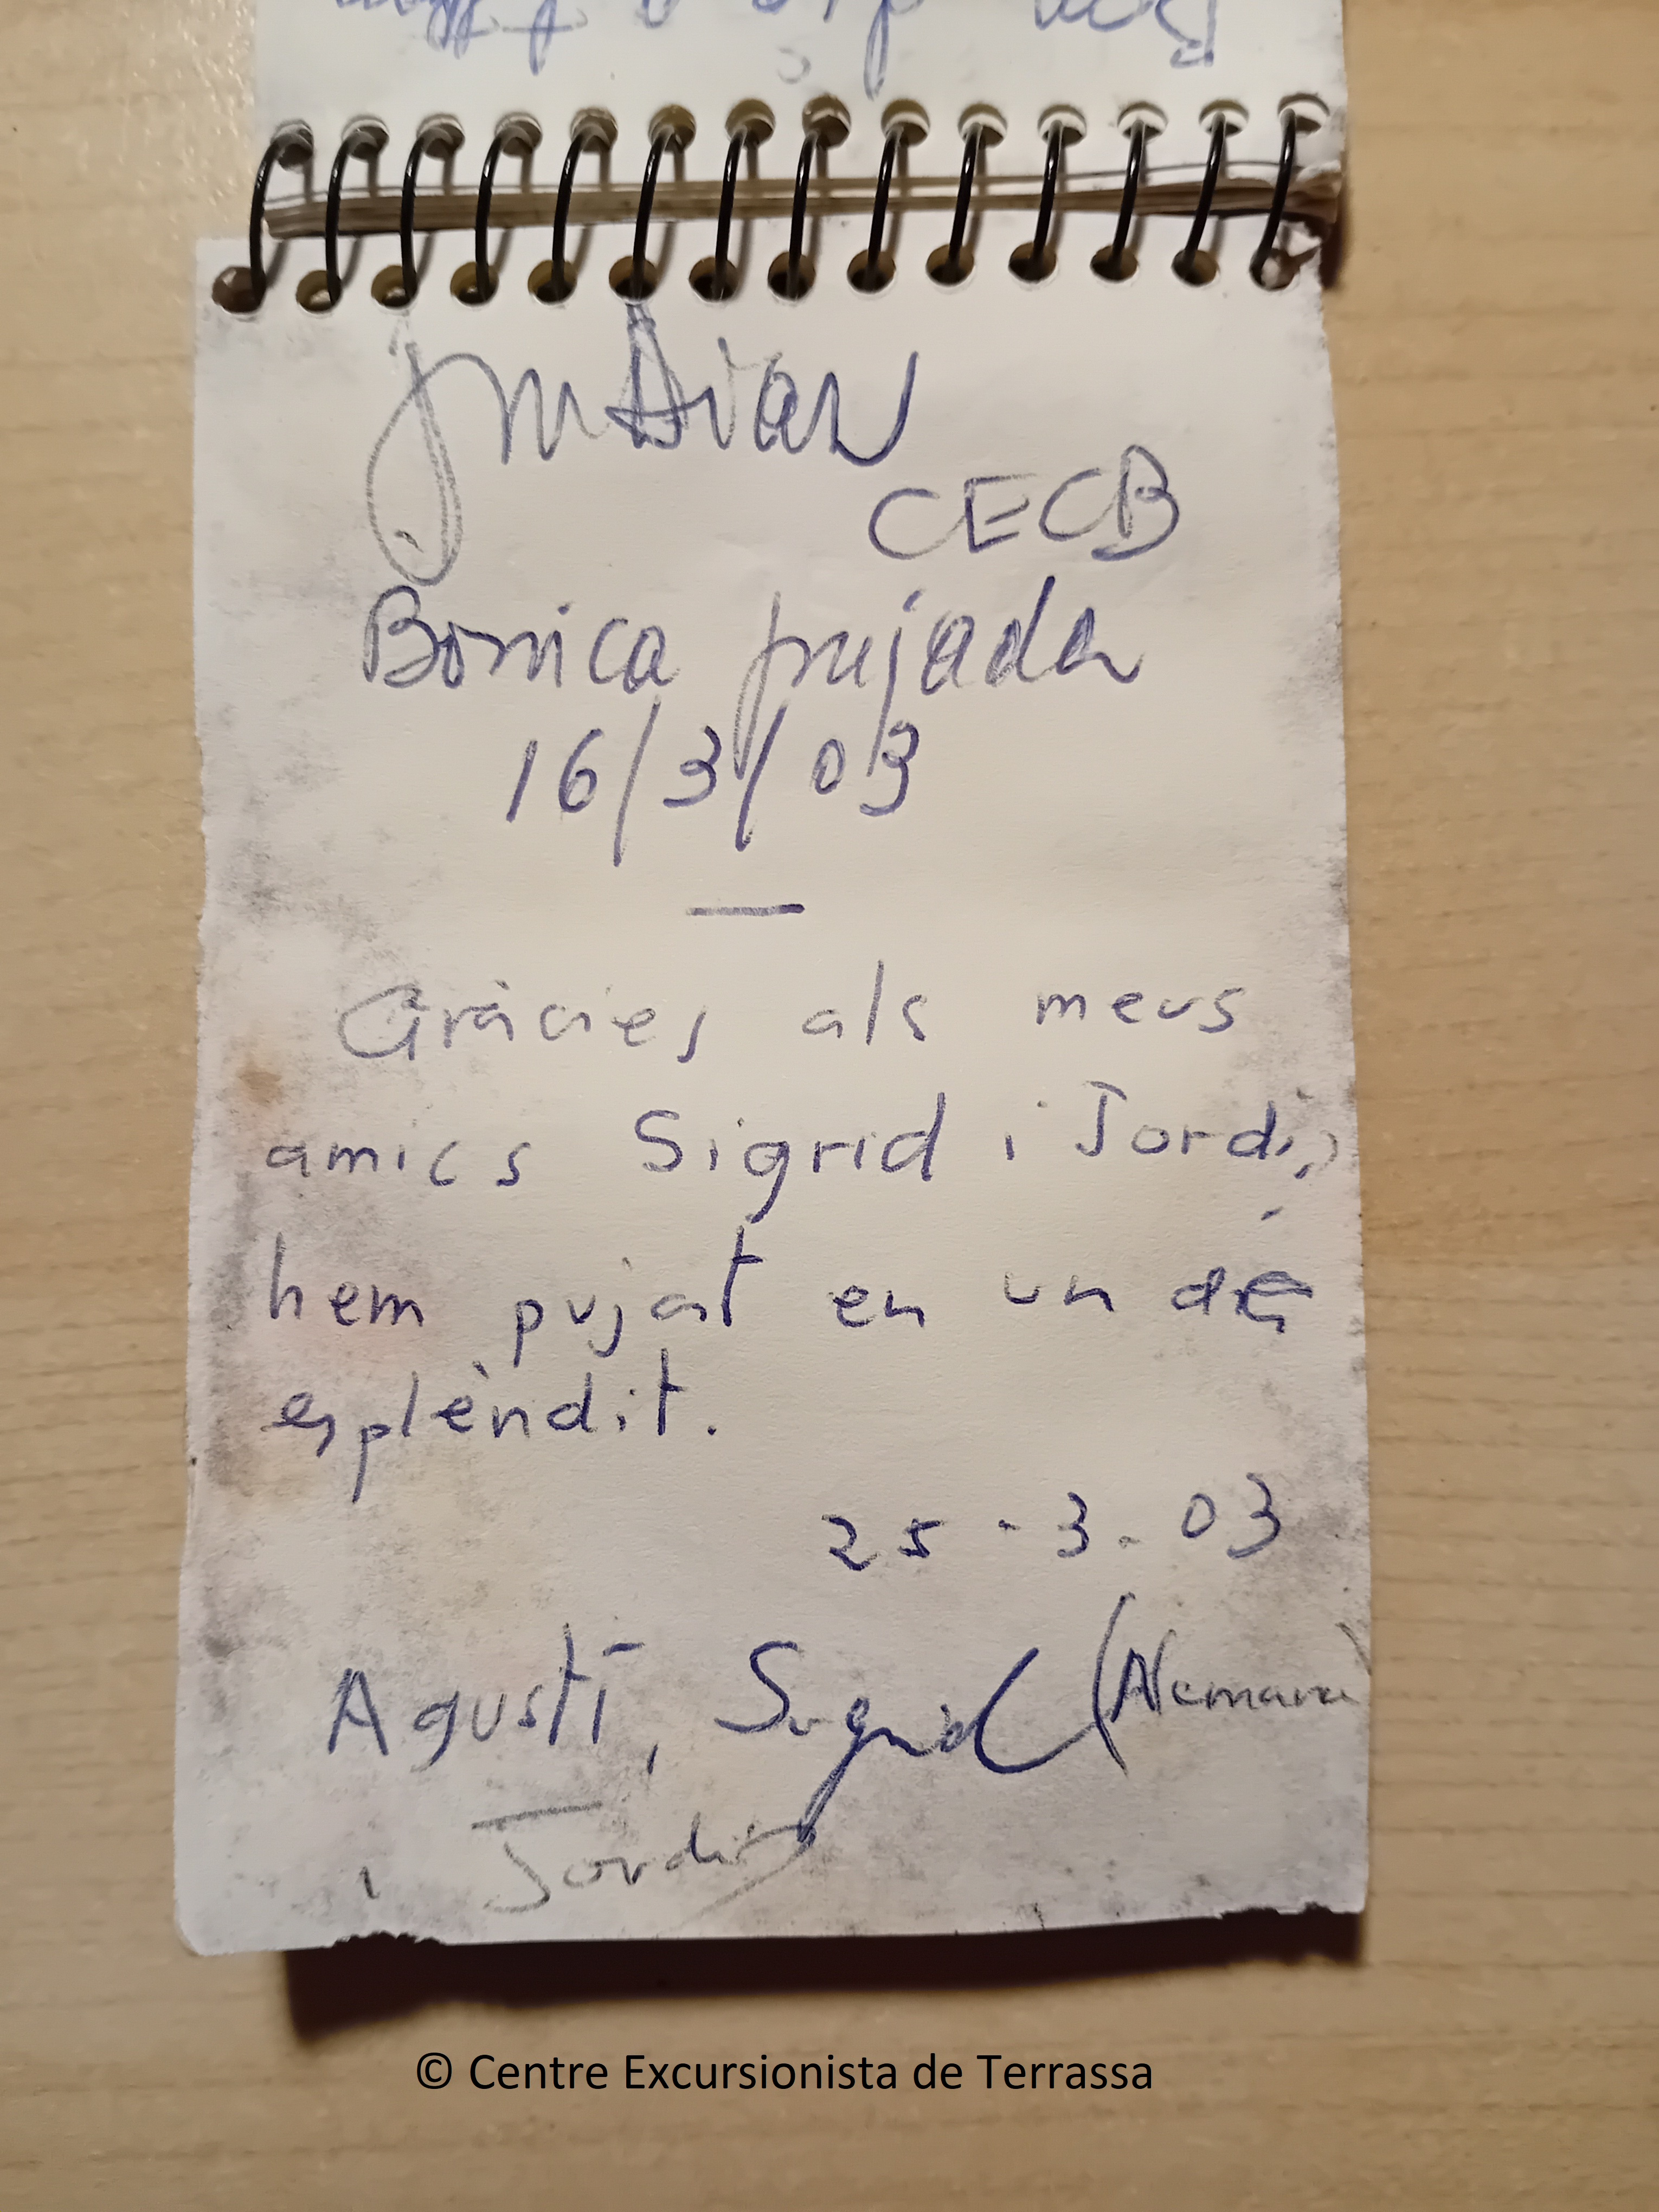 CECB
Bonica pujada
16/3/03
Gràcies als meus
amics Sigrid i Jordi,
hem pujat en un
esplèndit.
25-3-03
Agustí, Sigrid (Alemana)
i Jordi
© Centre Excursionista de Terrassa